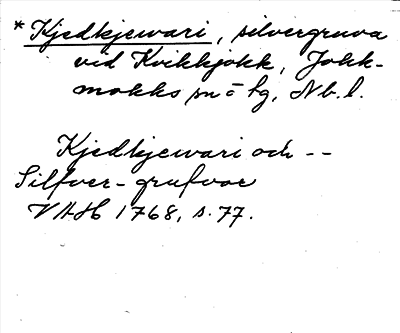 * Kjedkjewari, silvergruva
vid Kvikkjokk, Jokk-
mokks sn o tg, Nb. l.
Kjedkjewari och --
Silfver-grufvor
VAH 1768, s. 77.